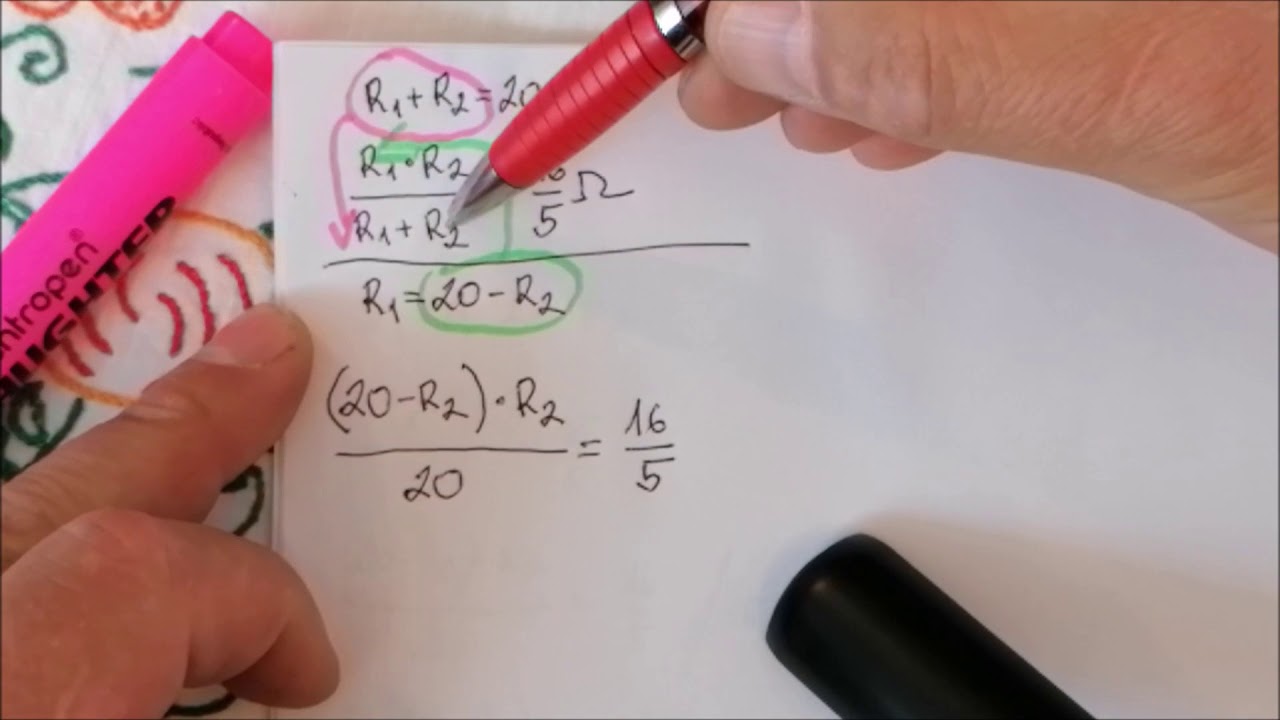 R₁ + R₂ = 20
R₁ · R₂
R₁ + R₂
5 Ω
R₁ = 20 − R₂
(20 − R₂) · R₂
20
=
16
5
ntropen®